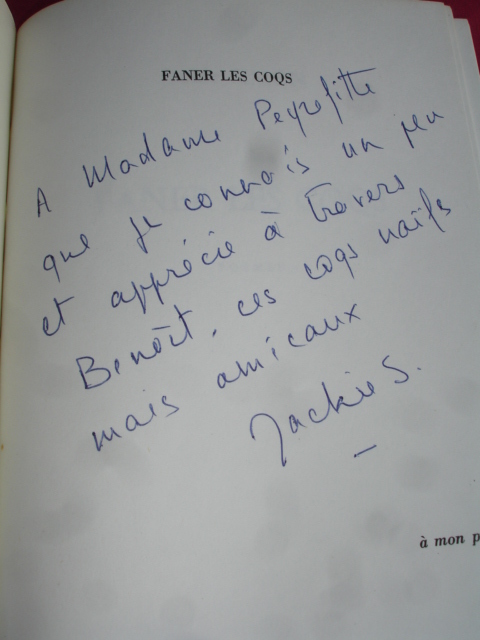 FANER LES COQS
A Madame Peyrefitte
que je connais un peu
et apprécie à travers
Benoît, ces coqs naïfs
mais amicaux
Jackie S.
à mon p